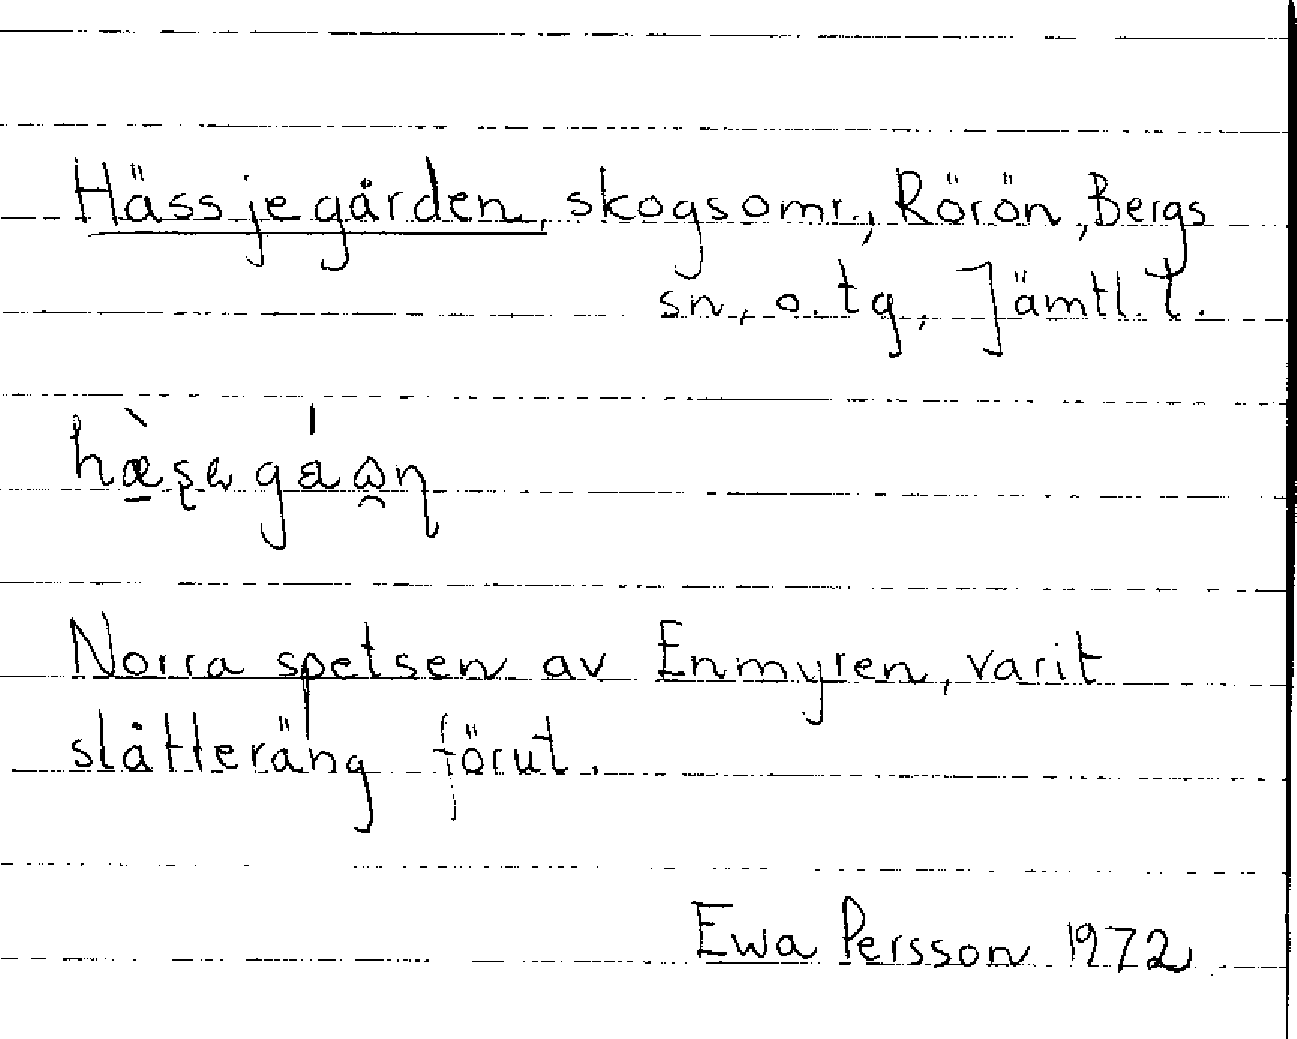 Hässjegården, skogsomr., Rörön, Bergs
sn, o. tg, Jämtl. l.
Norra spetsen av Enmyren, varit
slåtteräng förut.
Ewa Persson 1972